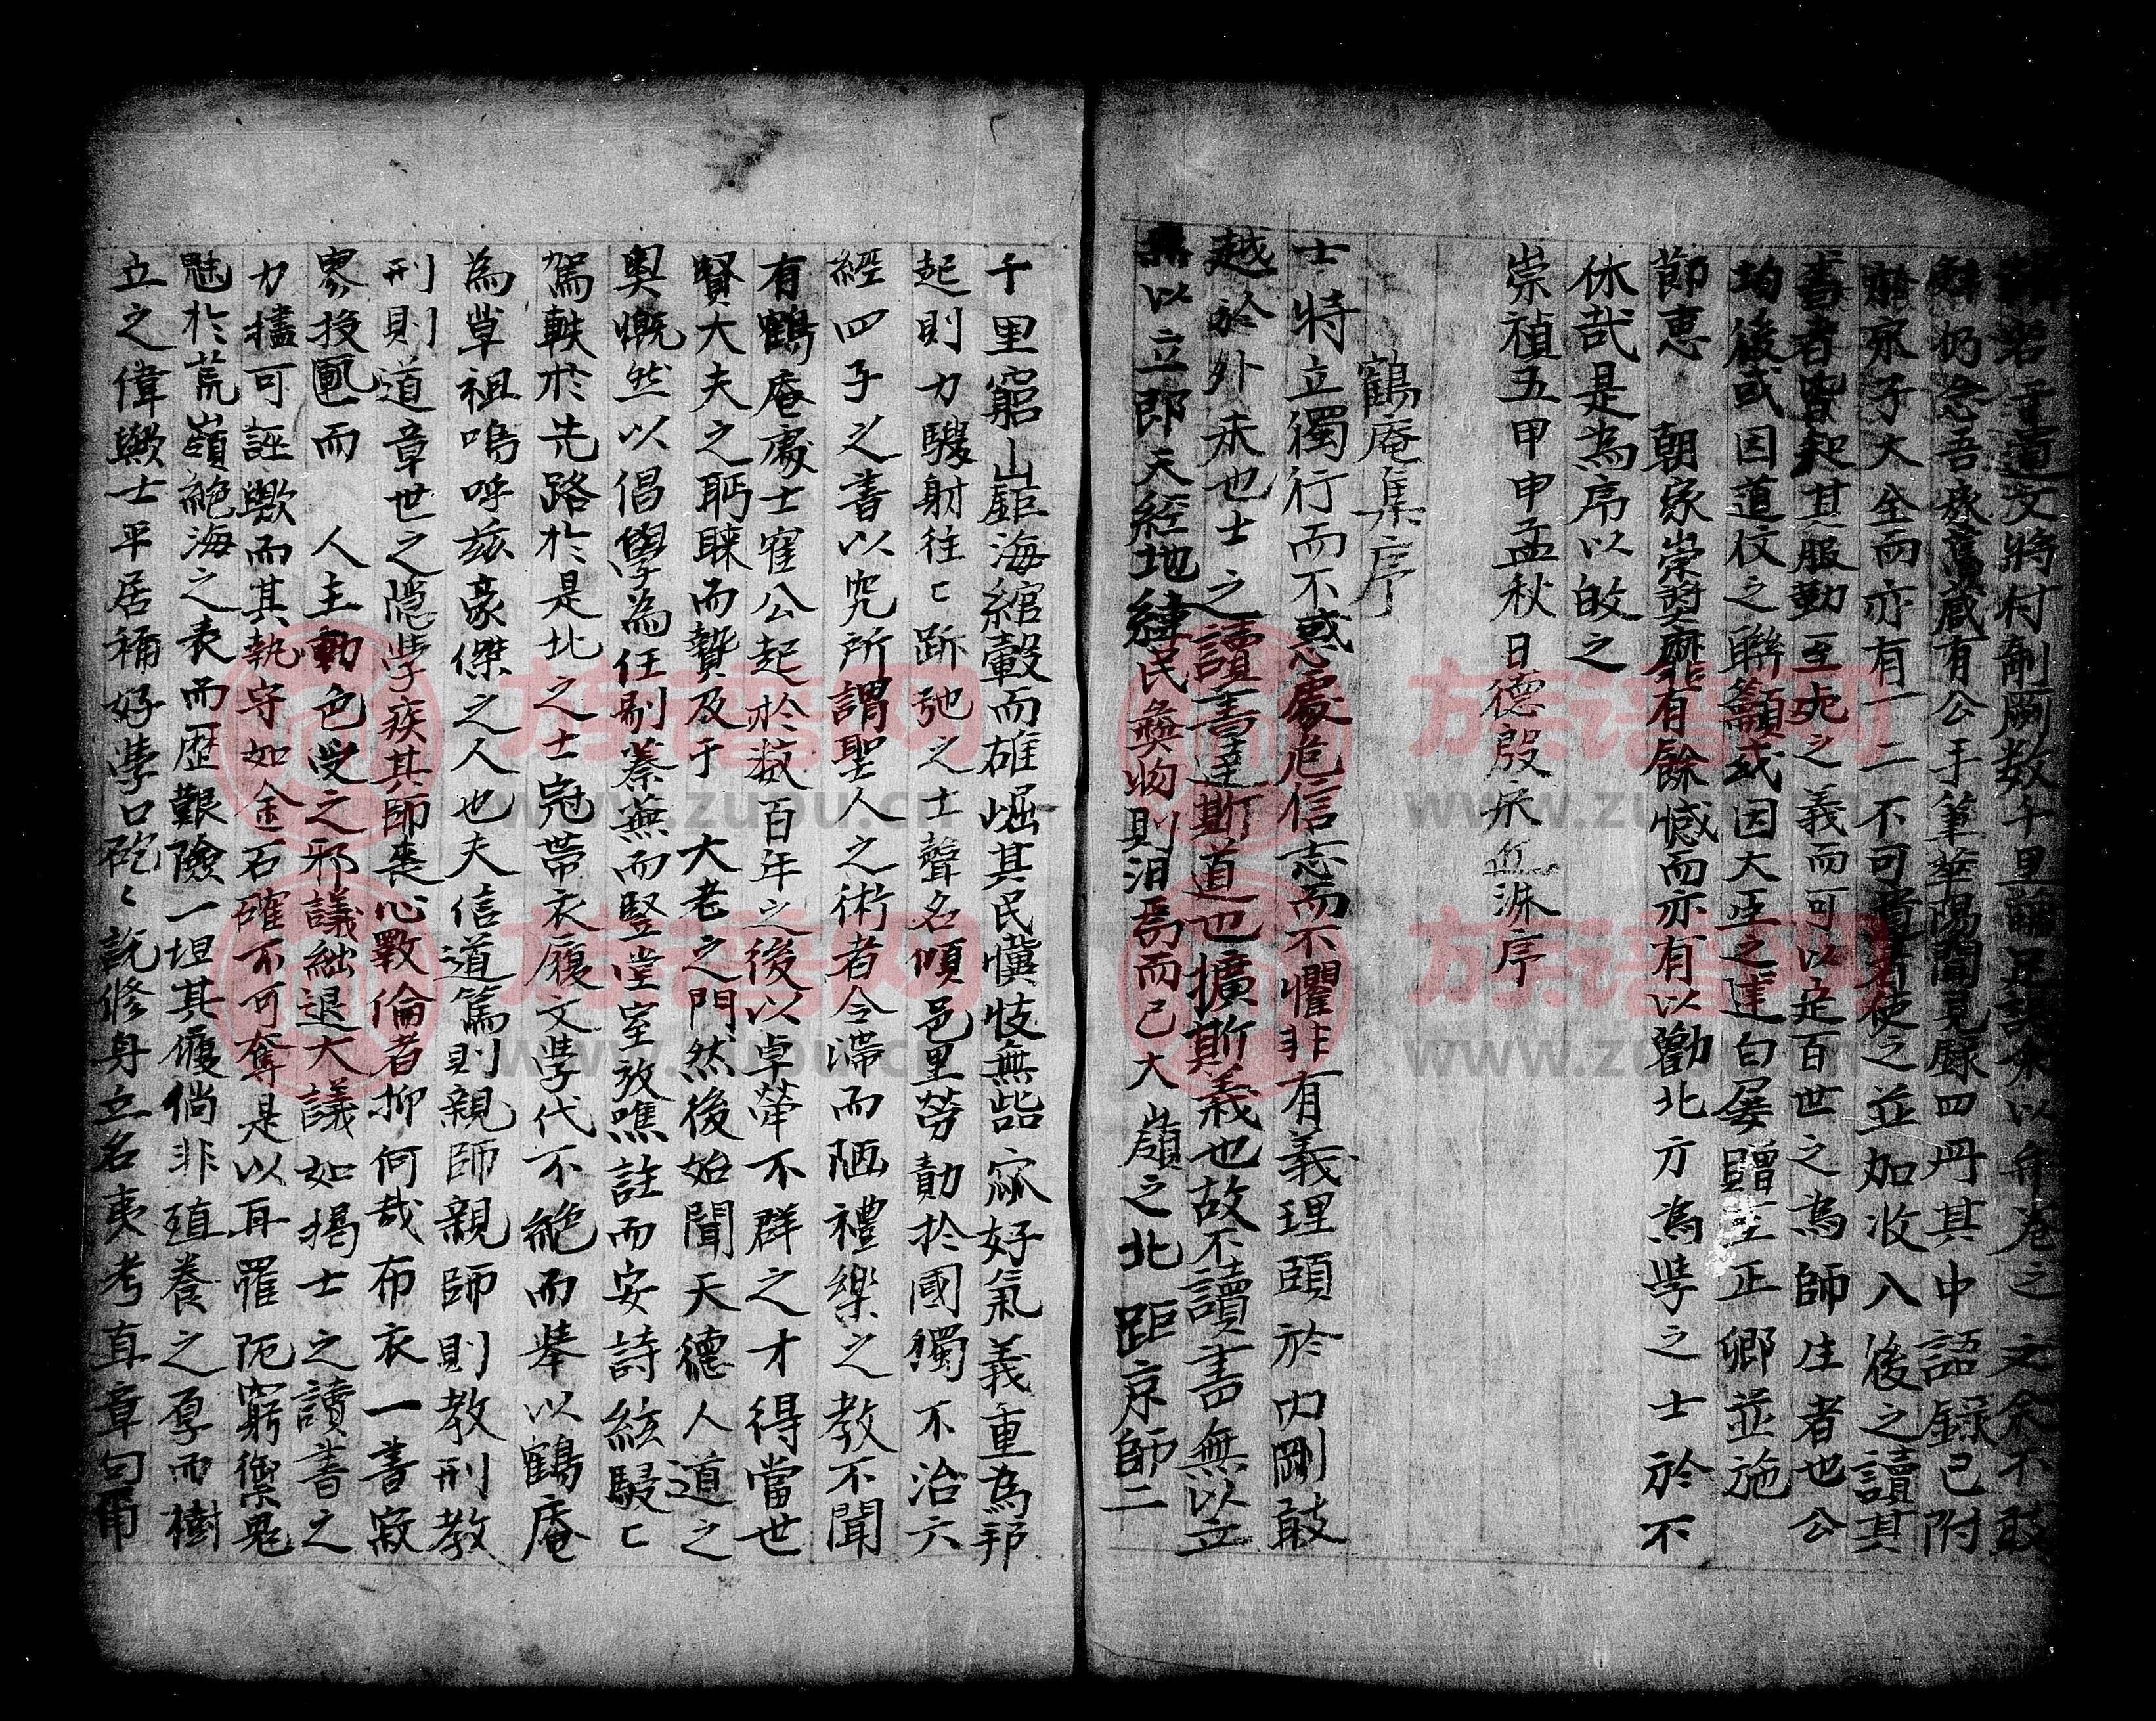 君道文將付剞劂数千里
仍念吾家舊蔵有公手筆華陽聞見録四冊其中語録已附
於宋子大全而亦有一二不可使之並加收入後之讀其
書者皆知其服勤至死之義而可以是百世之為師生者也公
均後或因道伩之聯籲或因大臣之達白屡贈至正卿並施
節恵　朝家崇奬靡有餘憾而亦有以勸北方為学之士於不
休哉是為序以敀之
崇禎五甲申孟秋日德殷宋近洙序
鶴庵集序
士特立獨行而不惑處危信志而不懼非有義理頤於内剛敢
越於外來也士之讀書達斯道也擴斯義也故不讀書無以立
以立即天經地緯民彝物則泪焉而已大嶺之北距京師二
千里窮山鉅海綰轂而雄崛其民懻忮無㱔窳好氣義重為邦
起則力騣射往〻跅弛之士聲名傾邑里劳勣扵國獨不治六
經四子之書以究所謂聖人之術者令滯而陋禮樂之教不聞
有鶴庵處士寉公起於数百年之後以卓犖不群之才得當世
賢大夫之眄睞而贄及于　大老之門然後始聞天德人道之
奥慨然以倡學為任剔蓁蕪而竪堂室放噍註而安詩絃駸〻
駕軼於先路於是北之士冠帶衣履文学代不絶而舉以鶴庵
為草祖嗚呼玆豪傑之人也夫信道篤則親師親師則教刑教
刑則道章世之隠学疾其師喪心斁倫者抑何哉布衣一書寂
寥投匭而　人主動色受之邪議絀退大議如揭士之讀書之
力㩁可誣歟而其執守如金石確不可奪是以再罹阨窮禦鬼
魅於荒嶺絶海之表而歴艱險一坦其履倘非殖養之厚而樹
立之偉歟士平居稱好學口矻〻説修身立名夷考直章句甭